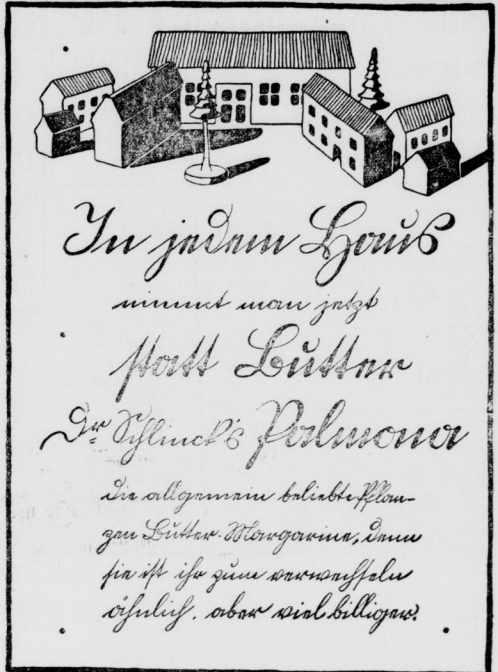 In jedem Haus
nimmt man jetzt
statt Butter
Dr. Schlinck's Palmona
die allgemein beliebte Pflan-
zen Butter-Margarine, denn
sie ist ihr zum verwechseln
ähnlich, aber viel billiger.